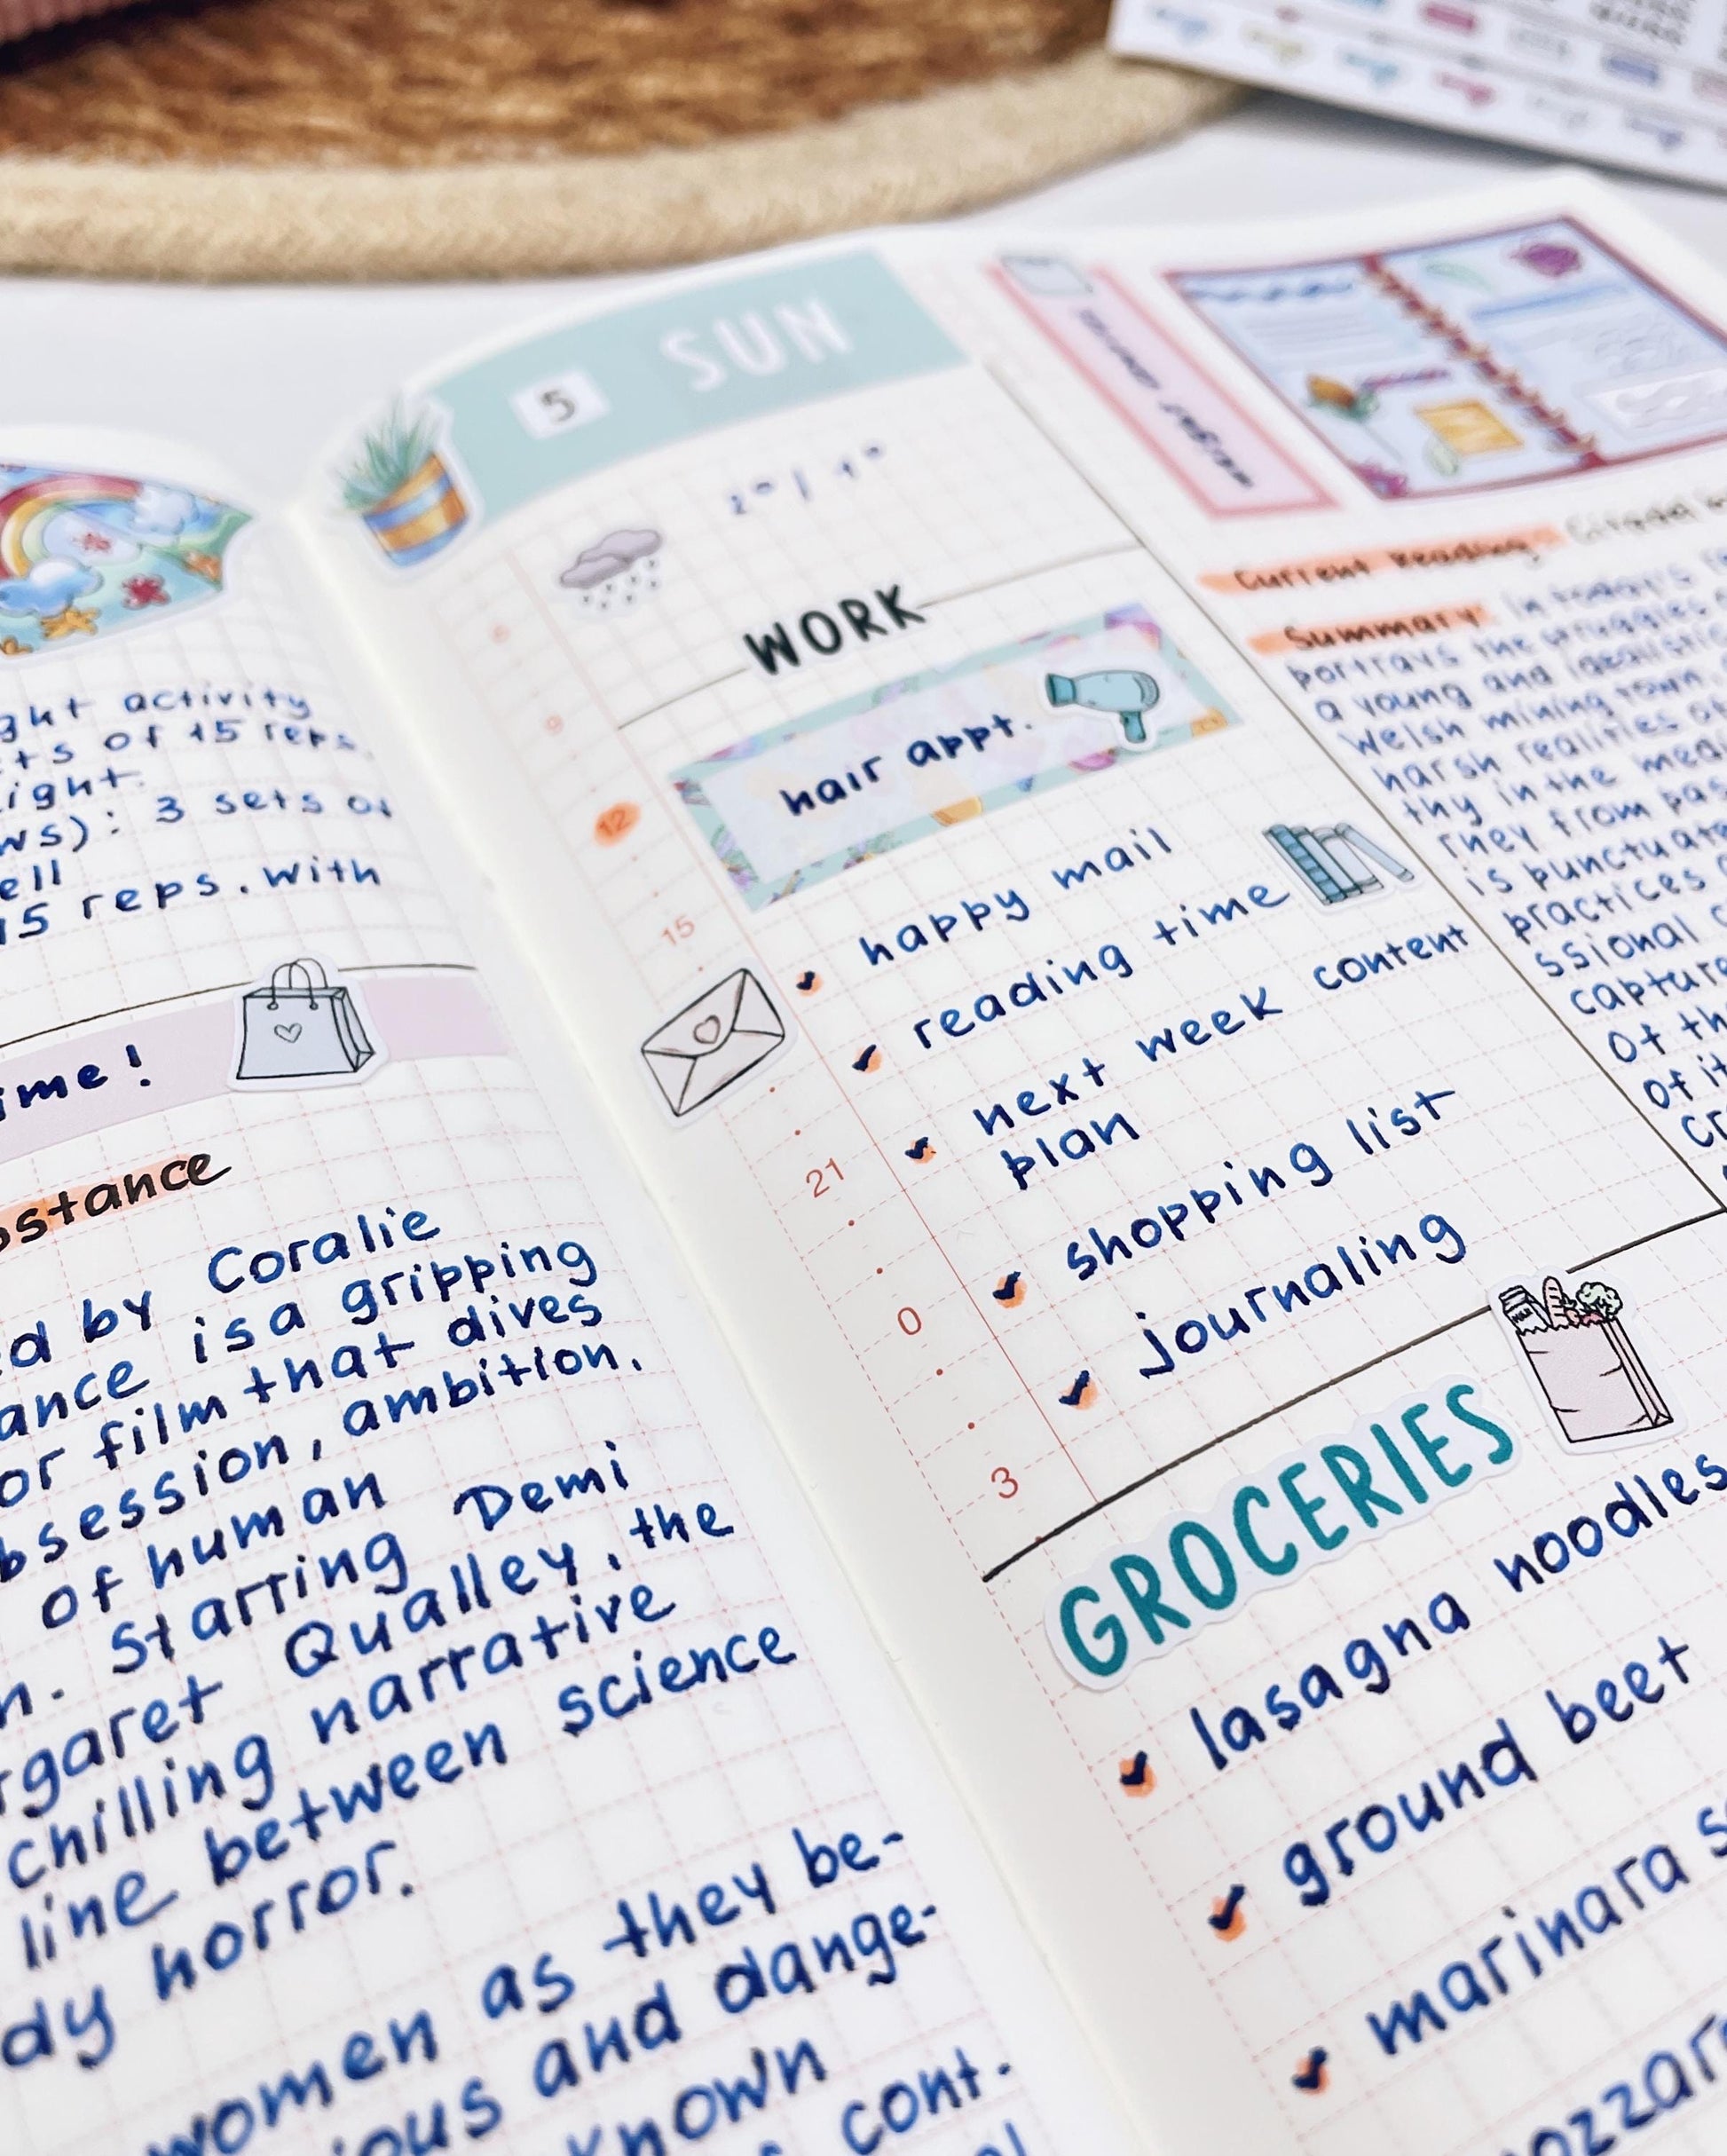 ght activity
ts of 15 reps.
ight.
ws): 3 sets of
ell
15 reps. with
ime!
ostance
ed by Coralie
ance is a gripping
or film that dives
bsession, ambition,
of human
n. Starring Demi
rgaret Qualley, the
chilling narrative
line between science
dy horror.
women as they be-
ious and dange-
known
cont.
5 SUN
2° | 1°
WORK
hair appt.
9
12
15
21
0
3
happy mail
reading time
next week content
plan
shopping list
journaling
GROCERIES
lasagna noodles
ground beef
marinara s
ozzare
Current Reading: Citadel
Summary: In today's
portrays the struggles
a young and idealistic
Welsh mining town.
harsh realities of
thy in the medi
rney from pas
is punctuate
practices
ssional c
capture
of th
of it
cr